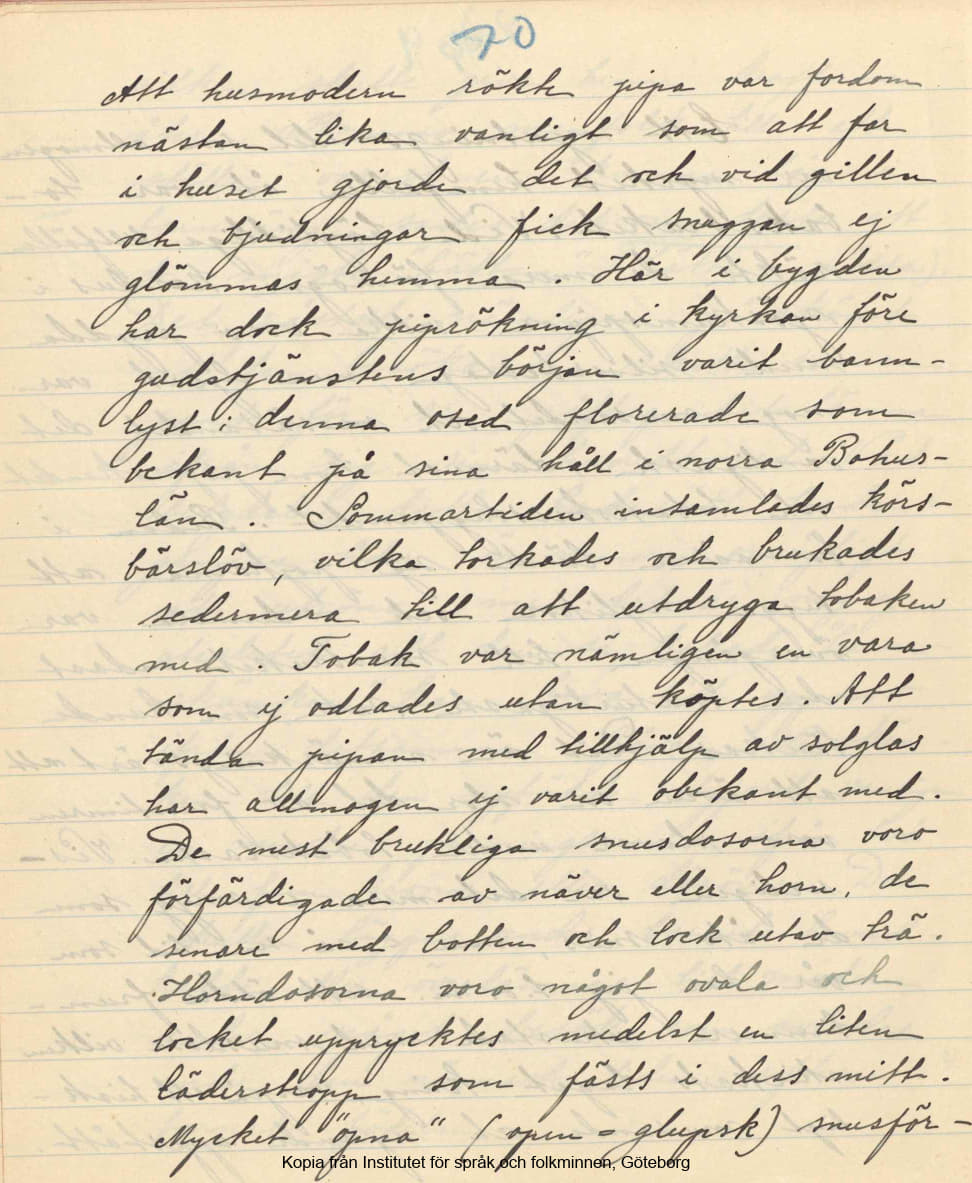 70
Att husmodern rökte pipa var fordom
nästan lika vanligt som att far
i huset gjorde det och vid gillen
och bjudningar fick snuggan ej
glömmas hemma. Här i bygden
har dock piprökning i kyrkan före
gudstjänstens början varit bann-
lyst; denna osed florerade som
bekant på sina håll i norra Bohus-
län. Sommartiden insamlades körs-
bärslöv, vilka torkades och brukades
sedermera till att utdryga tobaken
med. Tobak var nämligen en vara
som ej odlades utan köptes. Att
tända pipan med tillhjälp av solglas
har allmogen ej varit obekant med.
De mest brukliga snusdosorna voro
förfärdigade av näver eller horn, de
senare med botten och lock utav trä.
Horndosorna voro något ovala och
locket upprycktes medelst en liten
läderstropp som fästs i dess mitt.
Mycket "öpna" (open = glupsk) snusför-
Kopia från Institutet för språk och folkminnen, Göteborg